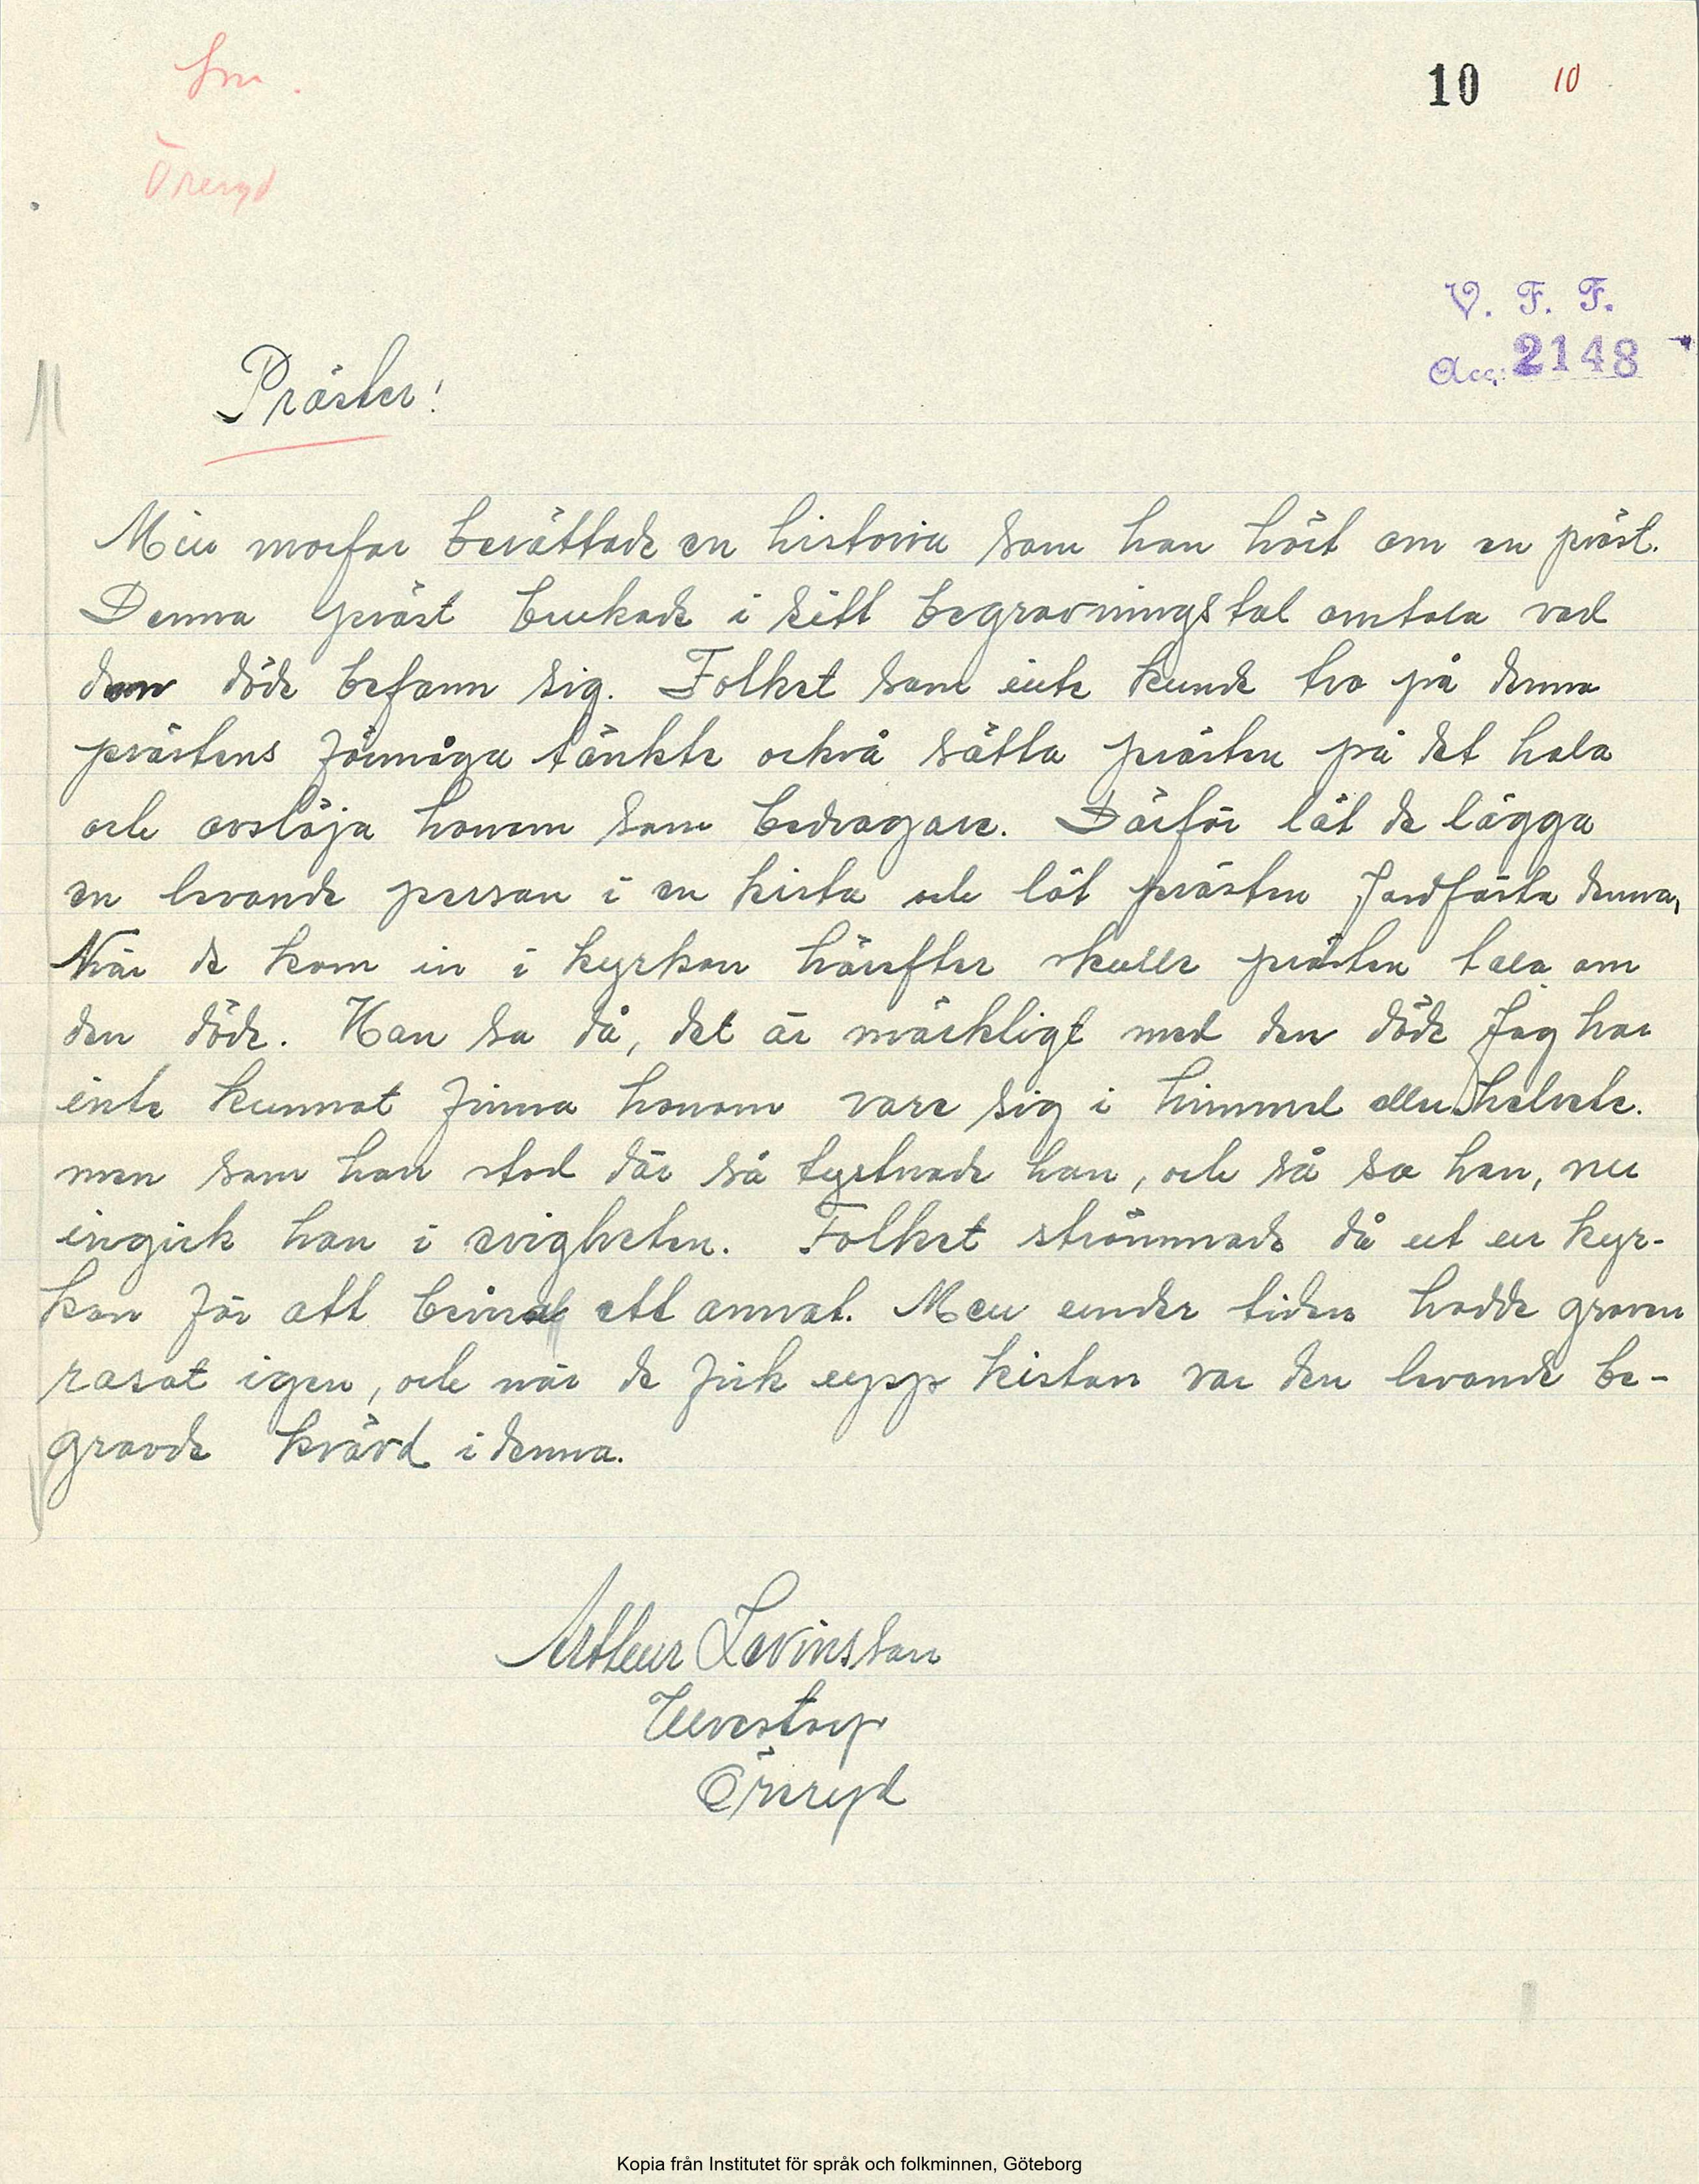 Sm.
10 10
Öreryd
V. F. F.
Acc: 2148
Präster!
Min morfar berättade en historia som han hört om en präst.
Denna präst brukade i sitt begravningstal omtala vad
den döde befann sig. Folket som inte kunde tro på denna
prästens förmåga tänkte också sätta prästen på det hala
och avslöja honom som bedragare. Därför lät de lägga
en levande person i en kista och lät prästen jordfästa denna,
När de kom in i kyrkan härefter skulle prästen tala om
den döde. Han sa då, det är märkligt med den döde jag har
inte kunnat finna honom vare sig i himmel eller helvete.
men som han stod där så tystnade han, och så sa han, nu
ingick han i evigheten. Folket strömmade då ut ur kyr-
kan för att bevisa ett annat. Men under tiden hadde graven
rasat igen, och när de fick upp kistan var den levande be-
gravde kvävd i denna.
Arthur Levinsson
Ulvestorp
Öreryd
Kopia från Institutet för språk och folkminnen, Göteborg